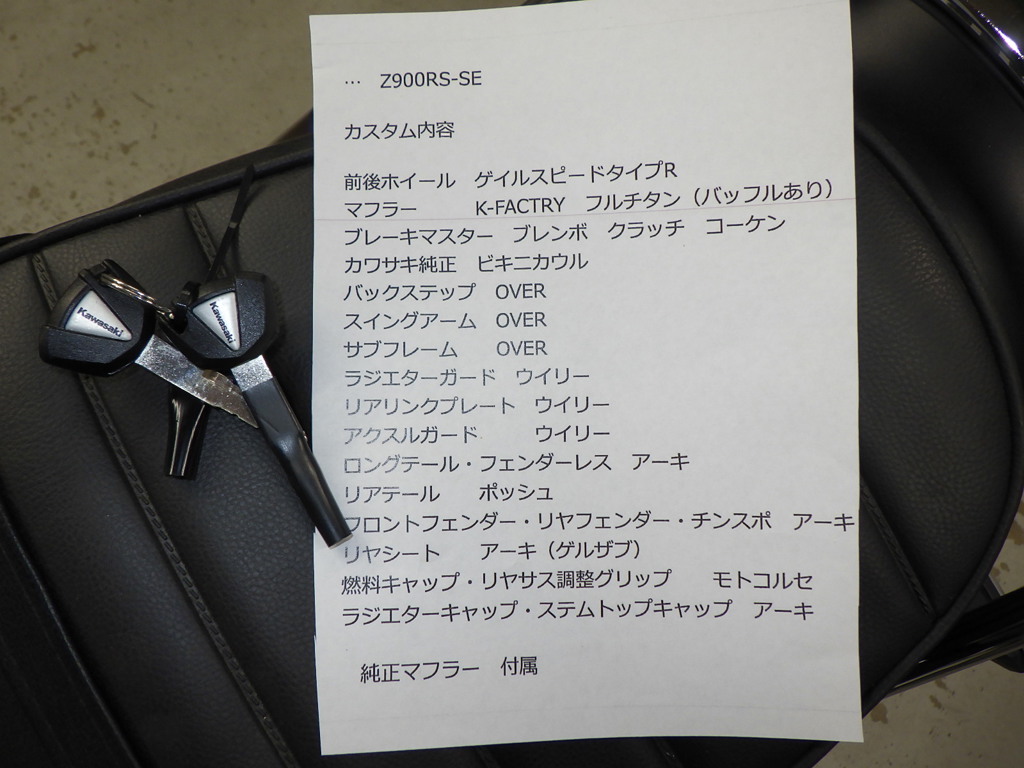 … Z900RS-SE
カスタム内容
前後ホイール ゲイルスピードタイプR
マフラー K-FACTRY フルチタン（バッフルあり）
ブレーキマスター ブレンボ クラッチ コーケン
カワサキ純正 ビキニカウル
バックステップ OVER
スイングアーム OVER
サブフレーム OVER
ラジエターガード ウイリー
リアリンクプレート ウイリー
アクスルガード ウイリー
ロングテール・フェンダーレス アーキ
リアテール ポッシュ
フロントフェンダー・リヤフェンダー・チンスポ アーキ
リヤシート アーキ（ゲルザブ）
燃料キャップ・リヤサス調整グリップ モトコルセ
ラジエターキャップ・ステムトップキャップ アーキ
純正マフラー 付属
Kawasaki
Kawasaki